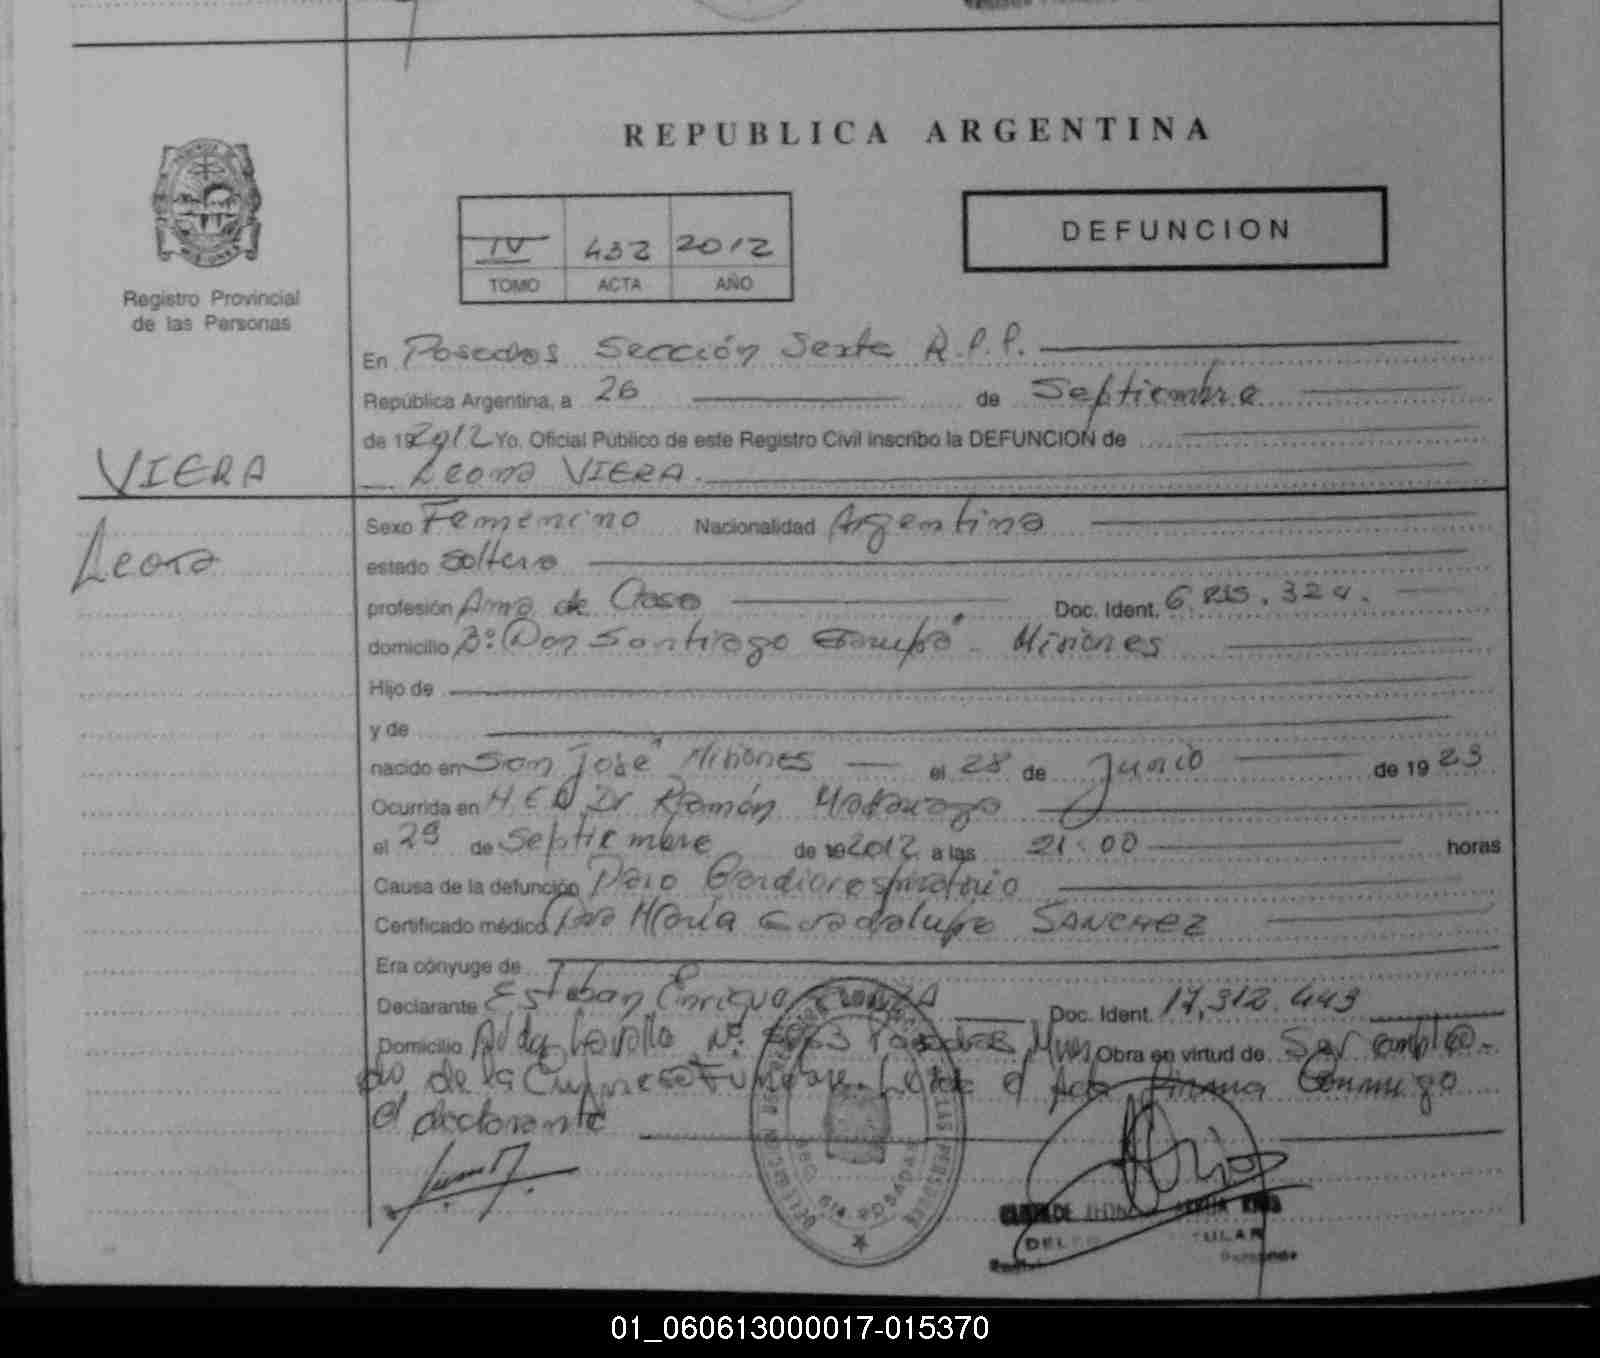 REPUBLICA ARGENTINA
DEFUNCION
IV 432 2012
TOMO ACTA AÑO
Registro Provincial
de las Personas
En Posadas Sección Sexta R.P.P.
República Argentina, a 26 de Septiembre
de 19 2012 Yo, Oficial Público de este Registro Civil inscribo la DEFUNCION de
Leona VIERA.
VIERA
Leona
Sexo Femenino Nacionalidad Argentina
estado Soltera
profesión Ama de Casa Doc. Ident. 6.
domicilio B° "Don Santiago" Misiones
Hijo de
y de
nacido en San José Misiones el 28 de Junio de 19 23
Ocurrida en H.E.A Dr Ramón Madariaga
el de Septiembre de 19 2012 a las 21:00 horas
Causa de la defunción Paro Cardiorespiratorio
Certificado médico Dra María Guadalupe SANCHEZ
Era cónyuge de
Declarante Esteban Enrique Doc. Ident. 17.312.443
Domicilio Avda N° Posadas Mnes Obra en virtud de Ser emplea-
do de la Empresa el Acta Firma Conmigo
el declarante
01_060613000017-015370